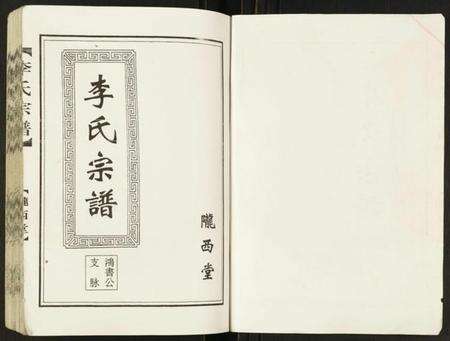 李氏宗譜
隴西堂
鴻書公
支脉
李氏宗譜
隴西堂